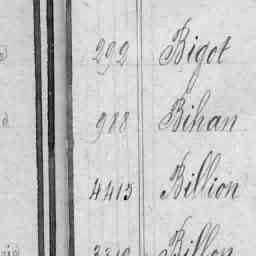 292 Bigot
988 Bihan
4415 Billion
Billon